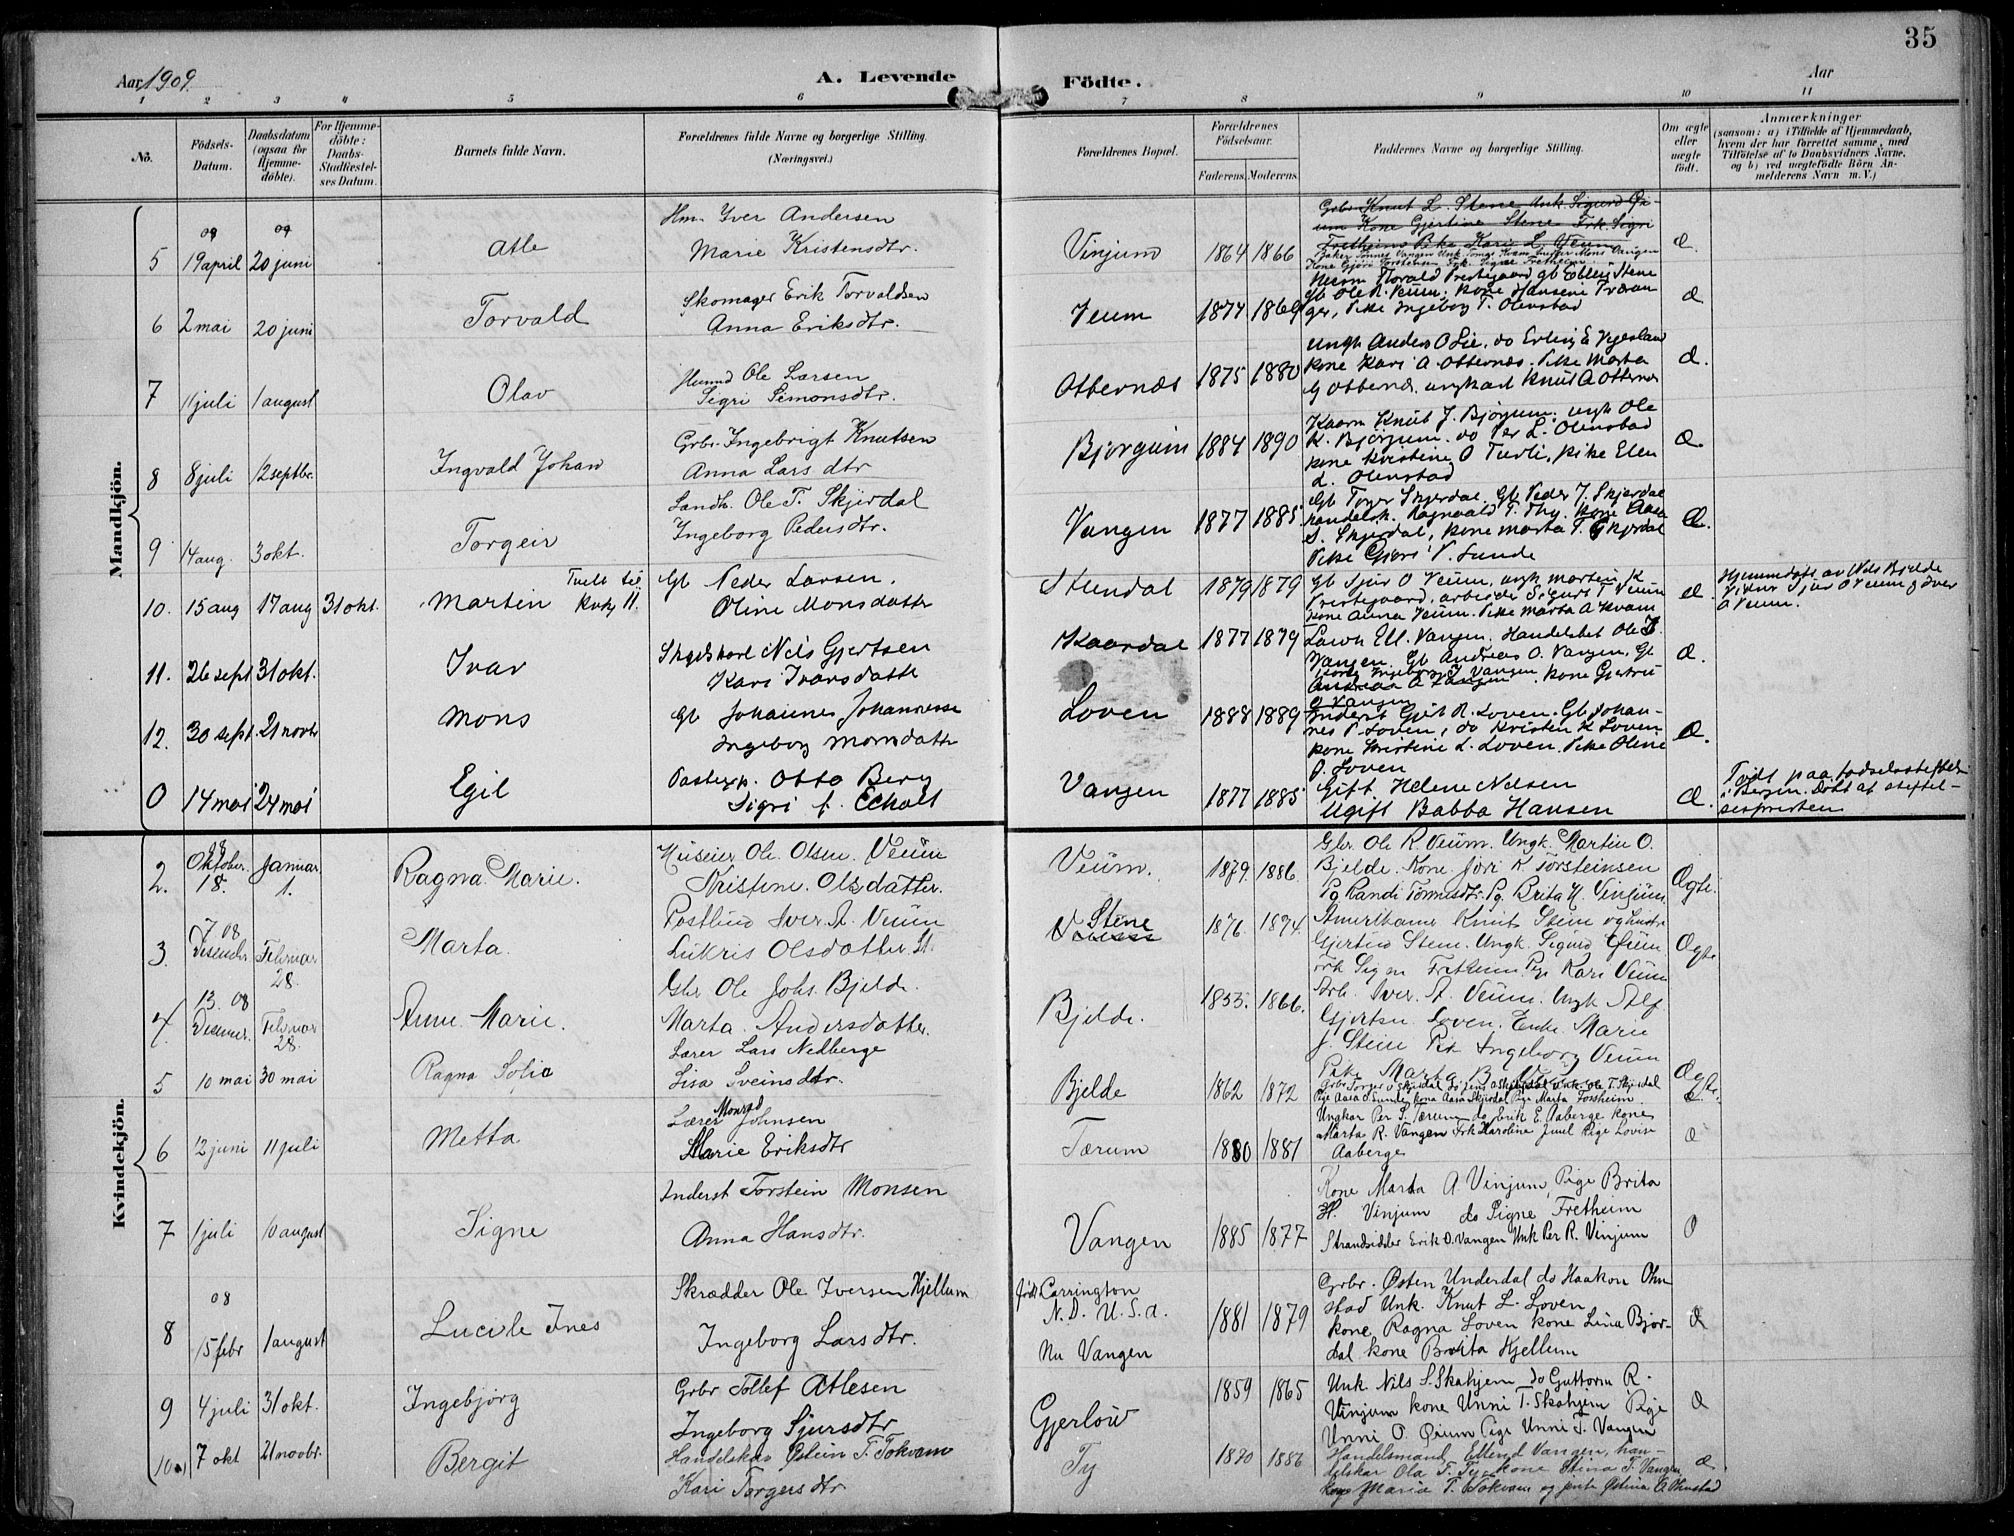 35
Aar 1909.
A. Levende Födte.
Aar
1 2 3 4 5 6 7 8 9 10 11
No.
Födsels-Datum.
Daabsdatum (ogsaa for Hjemme-döbte).
For Hjemme-döbte: Daabs-Stadfæstel-ses Datum.
Barnets fulde Navn.
Forældrenes fulde Navne og borgerlige Stilling. (Næringsvei.)
Forældrenes Bopæl.
Forældrenes Födselsaar.
Faderens. Moderens.
Faddernes Navne og borgerlige Stilling.
Om ægte eller uægte födt.
Anmærkninger
(saasom: a) i Tilfælde af Hjemmedaab, hvem der har forrettet samme, med Tilföielse af to Daabsvidners Navne, og b) ved uægtefödte Börn An-melderens Navn m. V.)
Mandkjön.
5 19 april 09 20 juni 09 Atle
Hm. Iver Andersen
Marie Kristensdtr.
Vinjum 1864 1866
Grbr Knut L. Stene Unk Sigurd Øi-
um Kone Gjertine Stene Frk. Sigri
Fretheim Pike Karie L. Veum
Æ.
6 2 mai 20 juni Torvald
Skomager Erik Torvaldsen
Anna Eriksdtr.
Veum 1874 1869
gb Ole R. Veum, kone Hansine Tværan
ger, Pike Ingeborg T. Olmstad
Æ
7 11 juli 1 august Olav
Husmd Ole Larsen
Sigri Simonsdtr.
Otternæs 1875 1880
ungk Anders O Lie, do Erling E Vgesland
kone Kari A Otternæs. Pike Marta
G Otternæs. ungkarl Knut A Otternæs
Æ.
8 8 juli 12 septbr. Ingvald Johan
Grbr. Ingebrigt Knutsen
Anna Lars dtr
Bjørgum 1884 1890
Kaarm Knut J. Bjørgum. ungk Ole
K. Bjørgum. do Per L. Olmstad
kone Kristine O Turli, pike Elen
L. Olmstad
Æ
9 14 aug. 3 okt. Torgeir
Landh. Ole T. Skjerdal
Ingeborg Pedersdtr.
Vangen 1877 1885
Gb Torger Skjerdal. Gb Peder J. Skjerdal
handelsk. Ragnvald T. Thy. kone Aasa
S. Skjerdal, kone Marta T. Skjerdal
Pike Gjøri V. Sunde
Æ.
10. 15 aug 17 aug 31 okt. Martin
Gb Neder Larsen.
Oline Monsdatter
Stundal 1879 1879
Gb Sjur O Veum, ungk Martin K
Prestegaard, arbeider Sigurd T Veum
kone Anna Veum. Pike Marta A Kvam
Æ.
Hjemmedøpt av Nils Bjelde
Vidner Sjur O Veum og Iver
A Veum.
11. 26 sept 31 okt. Ivar
Skydskarl Nils Gjertsen
Kari Ivarsdatter
Kaardal 1877 1879
Vangen. Gb Andreas O. Vangen. Gb
Æ.
12. 30 sept. 21 novbr Mons
Gb Johannes Johannesen
Ingeborg Monsdatter
Loven 1888 1889
Inderst Gjert R. Loven. Gb Johan-
nes P Loven, do Kristen K Loven
kone Kristine L. Loven. Pike Oline
O. Loven
Æ.
0 14 mai 24 mai Egil
Otto Berg
Sigri f. Echolt
Vangen 1877 1885
Gift Helene Nelsen
Ugift Babba Hansen
Æ.
Født paa fødselsstiftelsen
i Bergen. Døbt af stiftel-
sespresten
Kvindekjön.
2. Oktober 08 18. Januar 1. Ragna Marie.
Huseier Ole Olsen Veum
Kristine Olsdatter.
Veum. 1879. 1886.
Gbr. Ole R Veum. Ungk. Martin O.
Bjelde. Kone Jøri K Torsteinsen
Pg Randi Tomasdtr. Pg. Brita H. Vinjum
Ægte.
3. 7 08 Desember. Februar 28. Marta.
Postbud Iver A. Veum
Lukris Olsdatter St.
Stene 1876. 1874.
Amerikaner Knut Stene og hustru
Gjertine Stene. Ungk. Sigurd Øium
Frk Signe Fretheim. Pige Kari Veum
Ægte
4. 13. 08 Desember. Februar 28. Anne Marie.
Gbr Ole Johs. Bjelde.
Marta Andersdatter.
Bjelde. 1853. 1866.
Arb. Iver A. Veum. Ungk Alf
Gjertsen Loven. Enke Marie
J. Stene Pike Ingeborg Veum
Pike Marta B
Ægte.
5 10 mai 30 mai Ragna Sofie
Lærer Lars Nedberge
Lisa Sveinsdtr.
Bjelde 1862 1872
Æ
6 12 juni 11 juli Metta
Lærer Monsrad Johnsen
Marie Eriksdtr
Tærum 1880 1881
Ungkar Per S. Tærum do Erik E. Aaberge kone
Marta R. Vangen Frk Karoline Juul Pige Lovise
Aaberge
Æ
7 1 juli 10 august Signe
Inderst Torstein Monsen
Anna Hansdtr.
Vangen 1885 1877
Kone Marta A. Vinjum, Pige Brita
H. Vinjum do Signe Fretheim
Strandsidder Erik O. Vangen Unk Per R. Vinjum
O
8 08 15 febr 1 august Lucile Ines
Skrædder Ole Iversen Hjellum
Ingeborg Larsdtr.
født Carrington
N. D. U. S. A.
Nu Vangen
1881 1879
Grbr. Østen Underdal do Haakon Ohn
stad Unk. Knut L. Loven
kone Ragna Loven kone Lina Bjør-
dal kone Brita Hjellum
Æ
9 4 juli 31 okt. Ingebjørg
Grbr Tollef Atlesen
Ingeborg Sjursdtr
Gjerløw 1859 1865
Unk. Nils S. Skahjem do Guttorm R.
Vinjum kone Unni T. Skahjem Pige
Unni O. Øium Pige Unni T. Vangen
Æ
10 7 okt 21 novbr. Bergit
Handelskar Østein T. Tokvam
Kari Torgersdtr
Ty 1880 1886
Handelsmand Ellend Vangen, han-
delskar Ola T. Ty kone Stina T. Vangen
kone Maria T. Tokvam og jente Østina O. Ohnstad
Æ